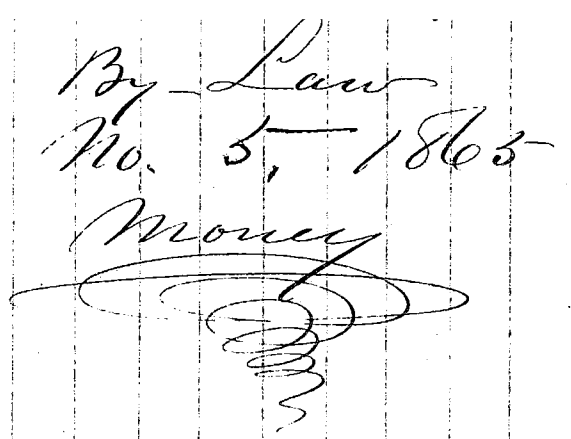 By-Law
No. 5, 1865
Money